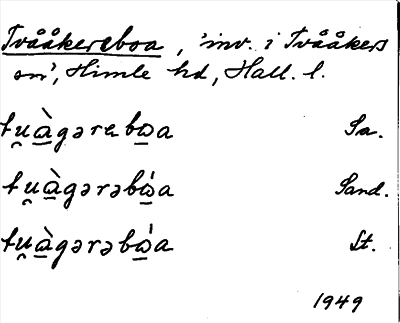 Tvååkersboa, 'inv. i Tvååkers
sn', Himle hd, Hall. l.
tu̯à̲gərəbω̲a Sa.
tu̯à̲gərəbώ̲a Sand.
tu̯à̲gərəbώ̲a St.
1949